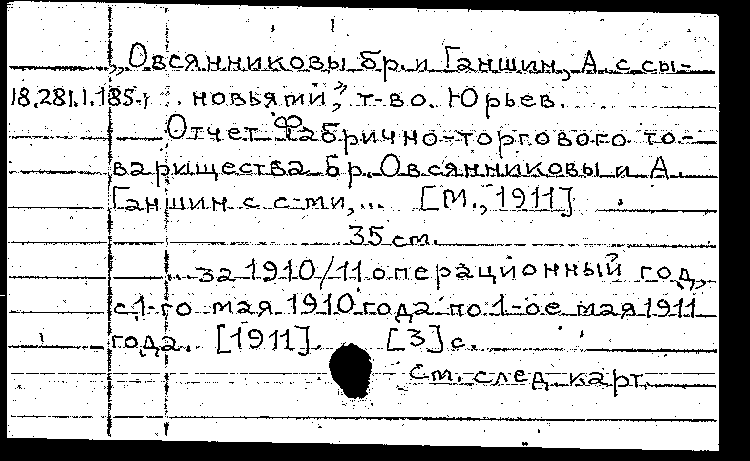 „Овсянниковы бр. и Ганшин, А. с сы-
18.281.1.185. новьями", т-во. Юрьев.
Отчет Фабрично-торгового то-
варищества Бр. Овсянниковы и А.
Ганшин с с-ми,... [М., 1911]
35 см.
... за 1910/11 операционный год,
с 1-го мая 1910 года по 1-ое мая 1911
года. [1911]. [3] с.
См. след. карт.